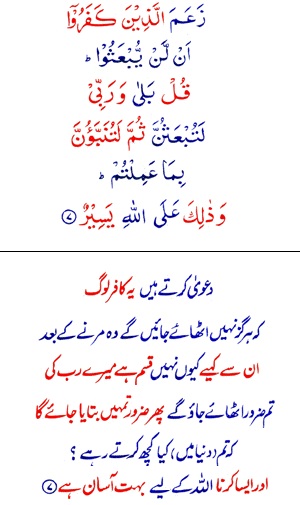 زَعَمَ الَّذِيْنَ كَفَرُوْۤا
اَنْ لَّنْ يُّبْعَثُوْا ؕ
قُلْ بَلٰى وَ رَبِّىْ
لَتُبْعَثُنَّ ثُمَّ لَتُنَبَّؤُنَّ
بِمَا عَمِلْتُمْ ؕ
وَ ذٰلِكَ عَلَى اللّٰهِ يَسِيْرٌ ۷
دعویٰ کرتے ہیں یہ کافر لوگ
کہ ہرگز نہیں اٹھائے جائیں گے وہ مرنے کے بعد
ان سے کہیے کیوں نہیں قسم ہے میرے رب کی
تم ضرور اٹھائے جاؤ گے پھر ضرور تمہیں بتایا جائے گا
کہ تم (دنیا میں) کیا کچھ کرتے رہے ؟
اور ایسا کرنا اللہ کے لیے بہت آسان ہے ۷